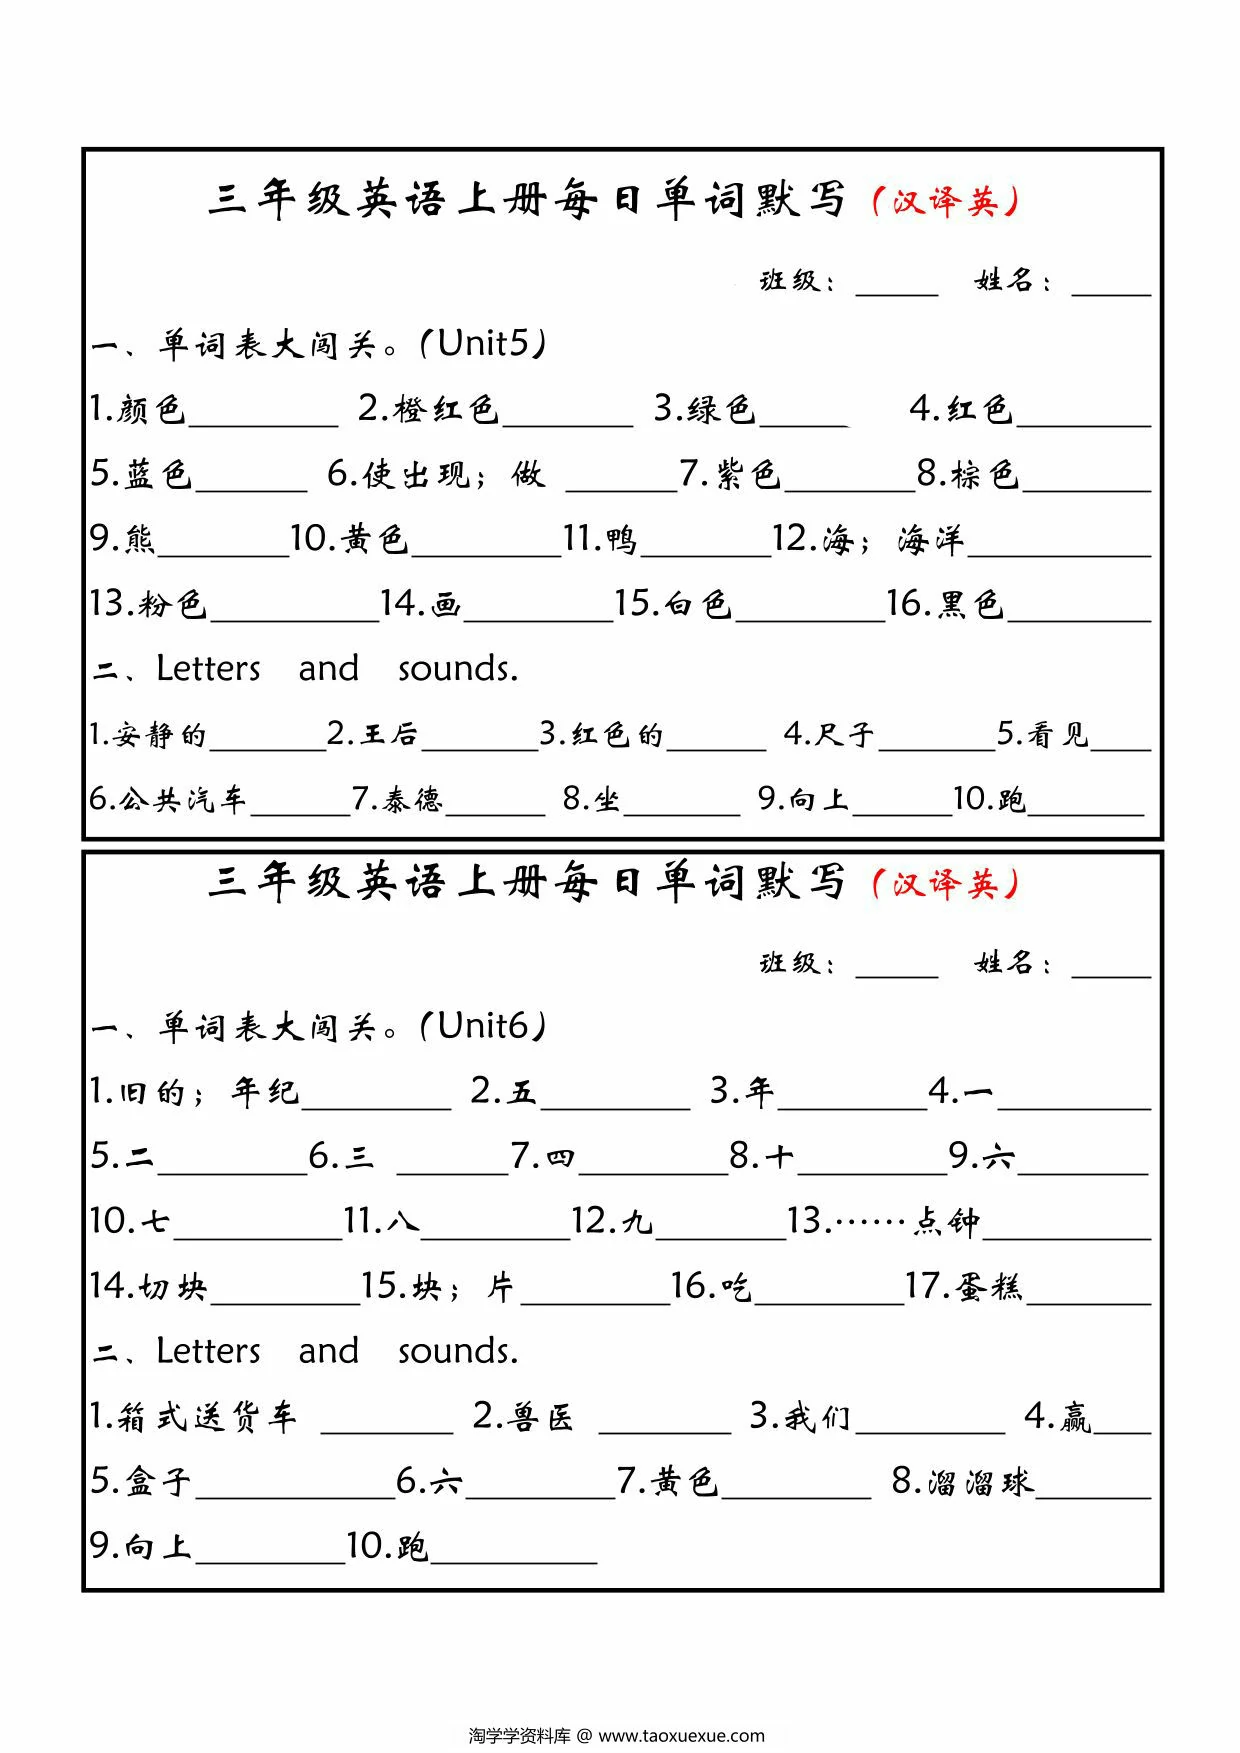 三年级英语上册每日单词默写（汉译英）
班级：_____ 姓名：_____
一、单词表大闯关。（Unit5）
1.颜色________ 2.橙红色_______ 3.绿色_____ 4.红色_______
5.蓝色______ 6.使出现；做 ______7.紫色_______8.棕色_______
9.熊_______10.黄色________11.鸭_______12.海；海洋__________
13.粉色_________14.画________15.白色________16.黑色________
二、Letters and sounds.
1.安静的_______2.王后_______3.红色的______ 4.尺子_______5.看见____
6.公共汽车______7.泰德______ 8.坐_______ 9.向上______10.跑_______
三年级英语上册每日单词默写（汉译英）
班级：_____ 姓名：_____
一、单词表大闯关。（Unit6）
1.旧的；年纪________ 2.五________ 3.年________4.一________
5.二________6.三 ______7.四________8.十________9.六_______
10.七_________11.八________12.九_______13.……点钟_________
14.切块________15.块；片________16.吃________17.蛋糕_______
二、Letters and sounds.
1.箱式送货车 _______ 2.兽医 _______ 3.我们________ 4.赢___
5.盒子___________6.六________7.黄色________ 8.溜溜球______
9.向上________10.跑_________
淘学学资料库 @ www.taoxuexue.com